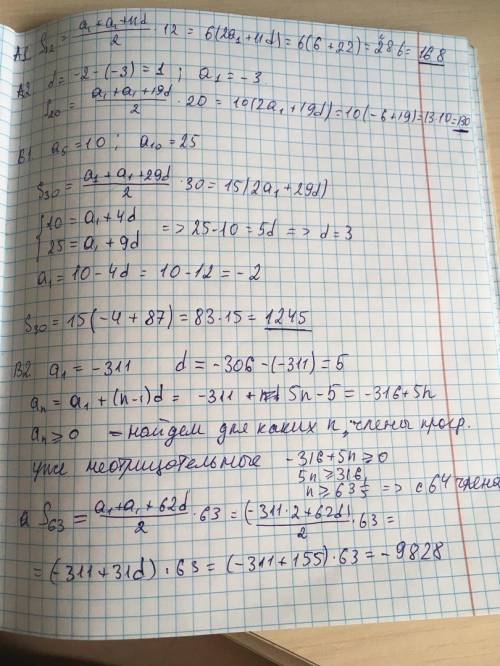 A1. S₁₂ = (a₁ + a₁ + 11d)/2 · 12 = 6(2a₁ + 11d) = 6(6 + 22) = 28·6 = 168
A2. d = -2 - (-3) = 1 ; a₁ = -3
S₂₀ = (a₁ + a₁ + 19d)/2 · 20 = 10(2a₁ + 19d) = 10(-6 + 19) = 13·10 = 130
B1. a₅ = 10 ; a₁₀ = 25
S₃₀ = (a₁ + a₁ + 29d)/2 · 30 = 15(2a₁ + 29d)
{10 = a₁ + 4d
25 = a₁ + 9d => 25 - 10 = 5d => d = 3
a₁ = 10 - 4d = 10 - 12 = -2
S₃₀ = 15(-4 + 87) = 83·15 = 1245
B2. a₁ = -311 d = -306 - (-311) = 5
aₙ = a₁ + (n-1)d = -311 + 5n - 5 = -316 + 5n
aₙ ≥ 0 - найдем для каких n, члены прогр.
уже неотрицательные -316 + 5n ≥ 0
5n ≥ 316
n ≥ 63 1/5 => с 64 члена
а S₆₃ = (a₁ + a₁ + 62d)/2 · 63 = (-311·2 + 62d)/2 · 63 =
= (-311 + 31d) · 63 = (-311 + 155) · 63 = -9828